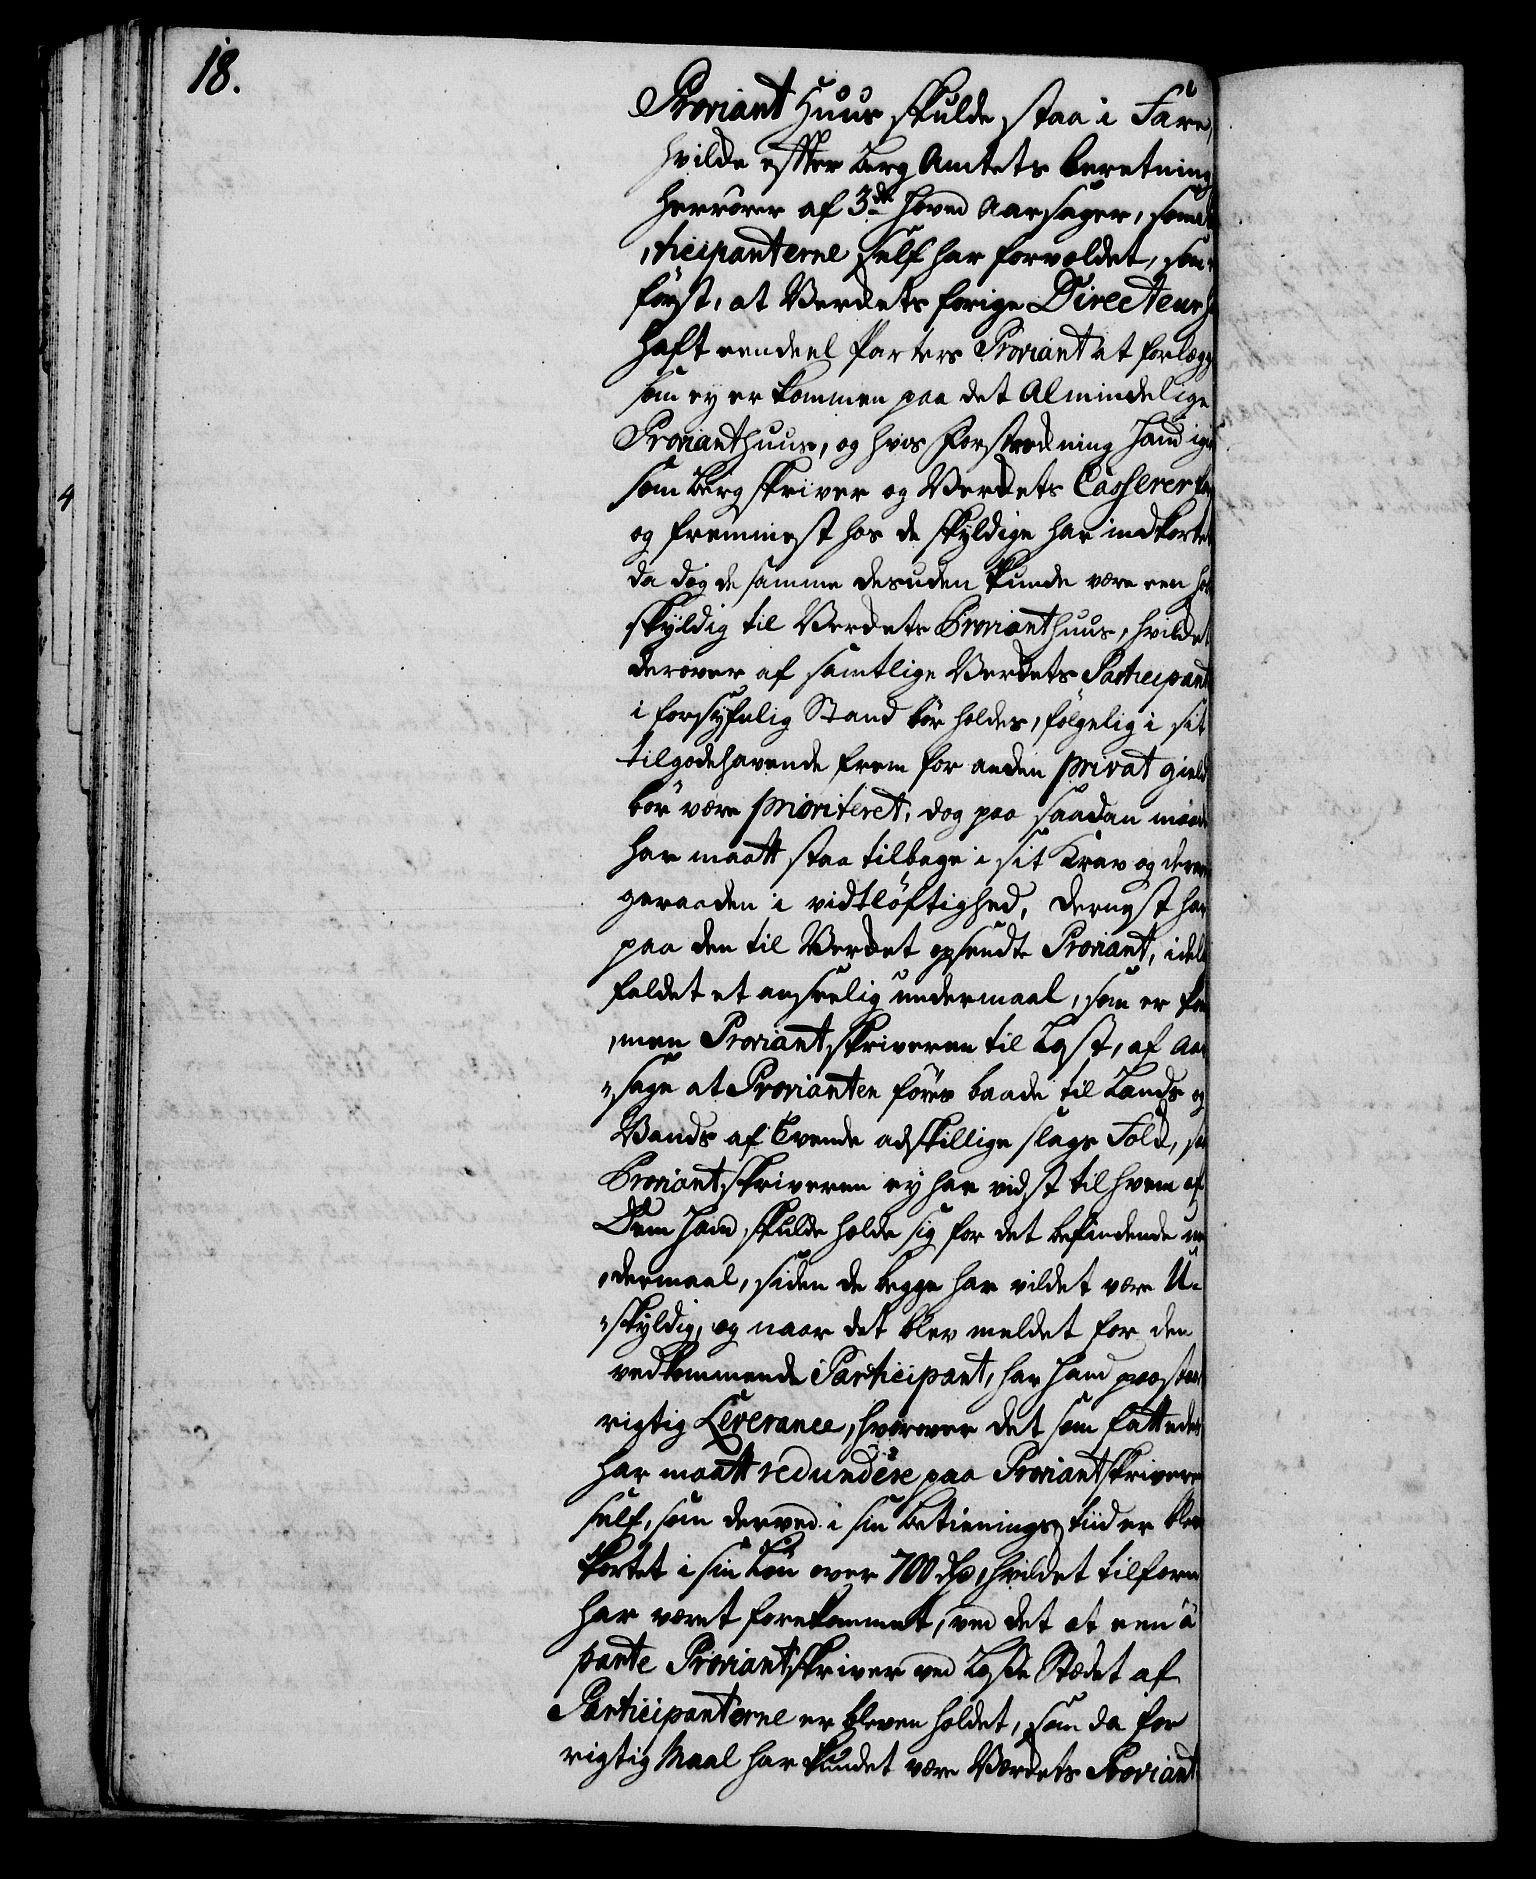 18.
Proviant Huus skulde staa i Fare,
hvilde effter Berg Amtets beretning
herrörer af 3de hoved Aarsager, som
ticipanterne self har forvoldet, som
först, at Verckets forige Directeur
haft eendeel Parters Proviant at forlegge
som ey er kommen paa det Almindelige
Provianthuus, og hvis Forstrækning hand igien
som Bergskriver og Verckets Casserer
og fremmest hos de skyldige har indkortet
da dog de samme desuden kunde være een
skyldig til Verckets Provianthuus, hvilcket
derover af samtlige Verckets Participant
i forsyhnlig Stand bör holdes, fölgelig i sit
tilgodehavende frem for anden privat gield
bör være prioriteret, dog paa saadan maade
har maatt staa tilbage i sit Krav og derover
geraaden i vidtlöftighed, dernest har
paa den til Vercket opsendte Proviant, idel
faldet et anseelig undermaal, som er kom
men Proviantskriveren til Last, af Aar
sage at Provianten föres baade til Lands og
Vands af tvende adskillige slags Folck,
Proviantskriveren ey har vidst til hvem af
Dem hand skulde holde sig for det befindende un
dermaal, siden de begge har vildet være U-
skyldig, og naar det blev meldet for den
vedkommende Participant, har hand præsteret
rigtig Leverance, hvorover det som fattedes
har maatt redundere paa Proviantskriveren
self, som derved i sin betienings tiid er blev
kortet i sin Lön over 700 rdr, hvilcket tilforn
har været forekommet, ved det at een à
parte Proviantskriver ved Lade Stædet af
Participanterne er bleven holdet, som da for
rigtig Maal har kundet være Værckets Proviant
4